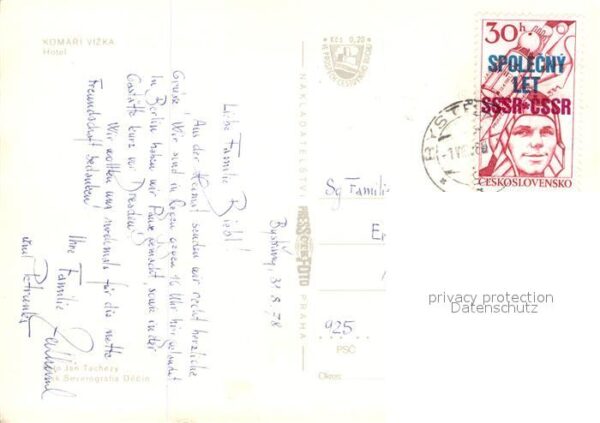 KOMÁŘÍ VÍŽKA
Hotel
Kčs 0,20
NAKLADATELSTVÍ
PRESSFOTO
PRAHA
30h
SPOLEČNÝ
LET
SSSR*ČSSR
ČESKOSLOVENSKO
BYST
Bystřany, 31.8.78
Liebe Familie
Aus der Heimat senden wir recht herzliche
Grüße. Wir sind in Regen gegen 16 Uhr hier gelandet
In Berlin haben wir Pause gemacht, sowie in der
Gaststätte kurz vor Dresden.
Wir wollten uns nochmals für die nette
Freundschaft bedanken!
Ihre Familie
und
Sg Famili
925
PSČ
Okres
Jan Tachezy
Severografia Děčín
privacy protection
Datenschutz